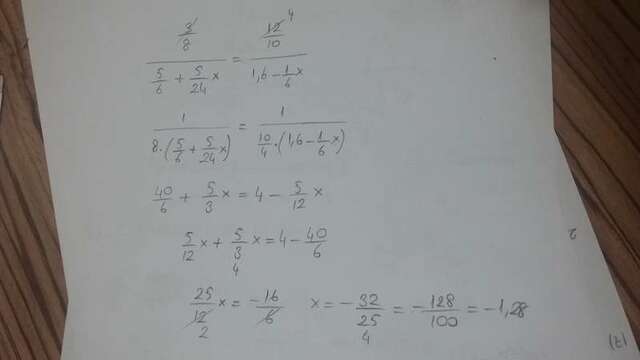 3/8 / (5/6 + 5/24 x) = 12/10 4 / (1,6 - 1/6 x)
1 / (8·(5/6 + 5/24 x)) = 1 / (10/4·(1,6 - 1/6 x))
40/6 + 5/3 x = 4 - 5/12 x
5/12 x + 5/3 x = 4 - 40/6
4
25/12 x = -16/6 x = - 32/25 = - 128/100 = -1,28
2 4
2
(7)